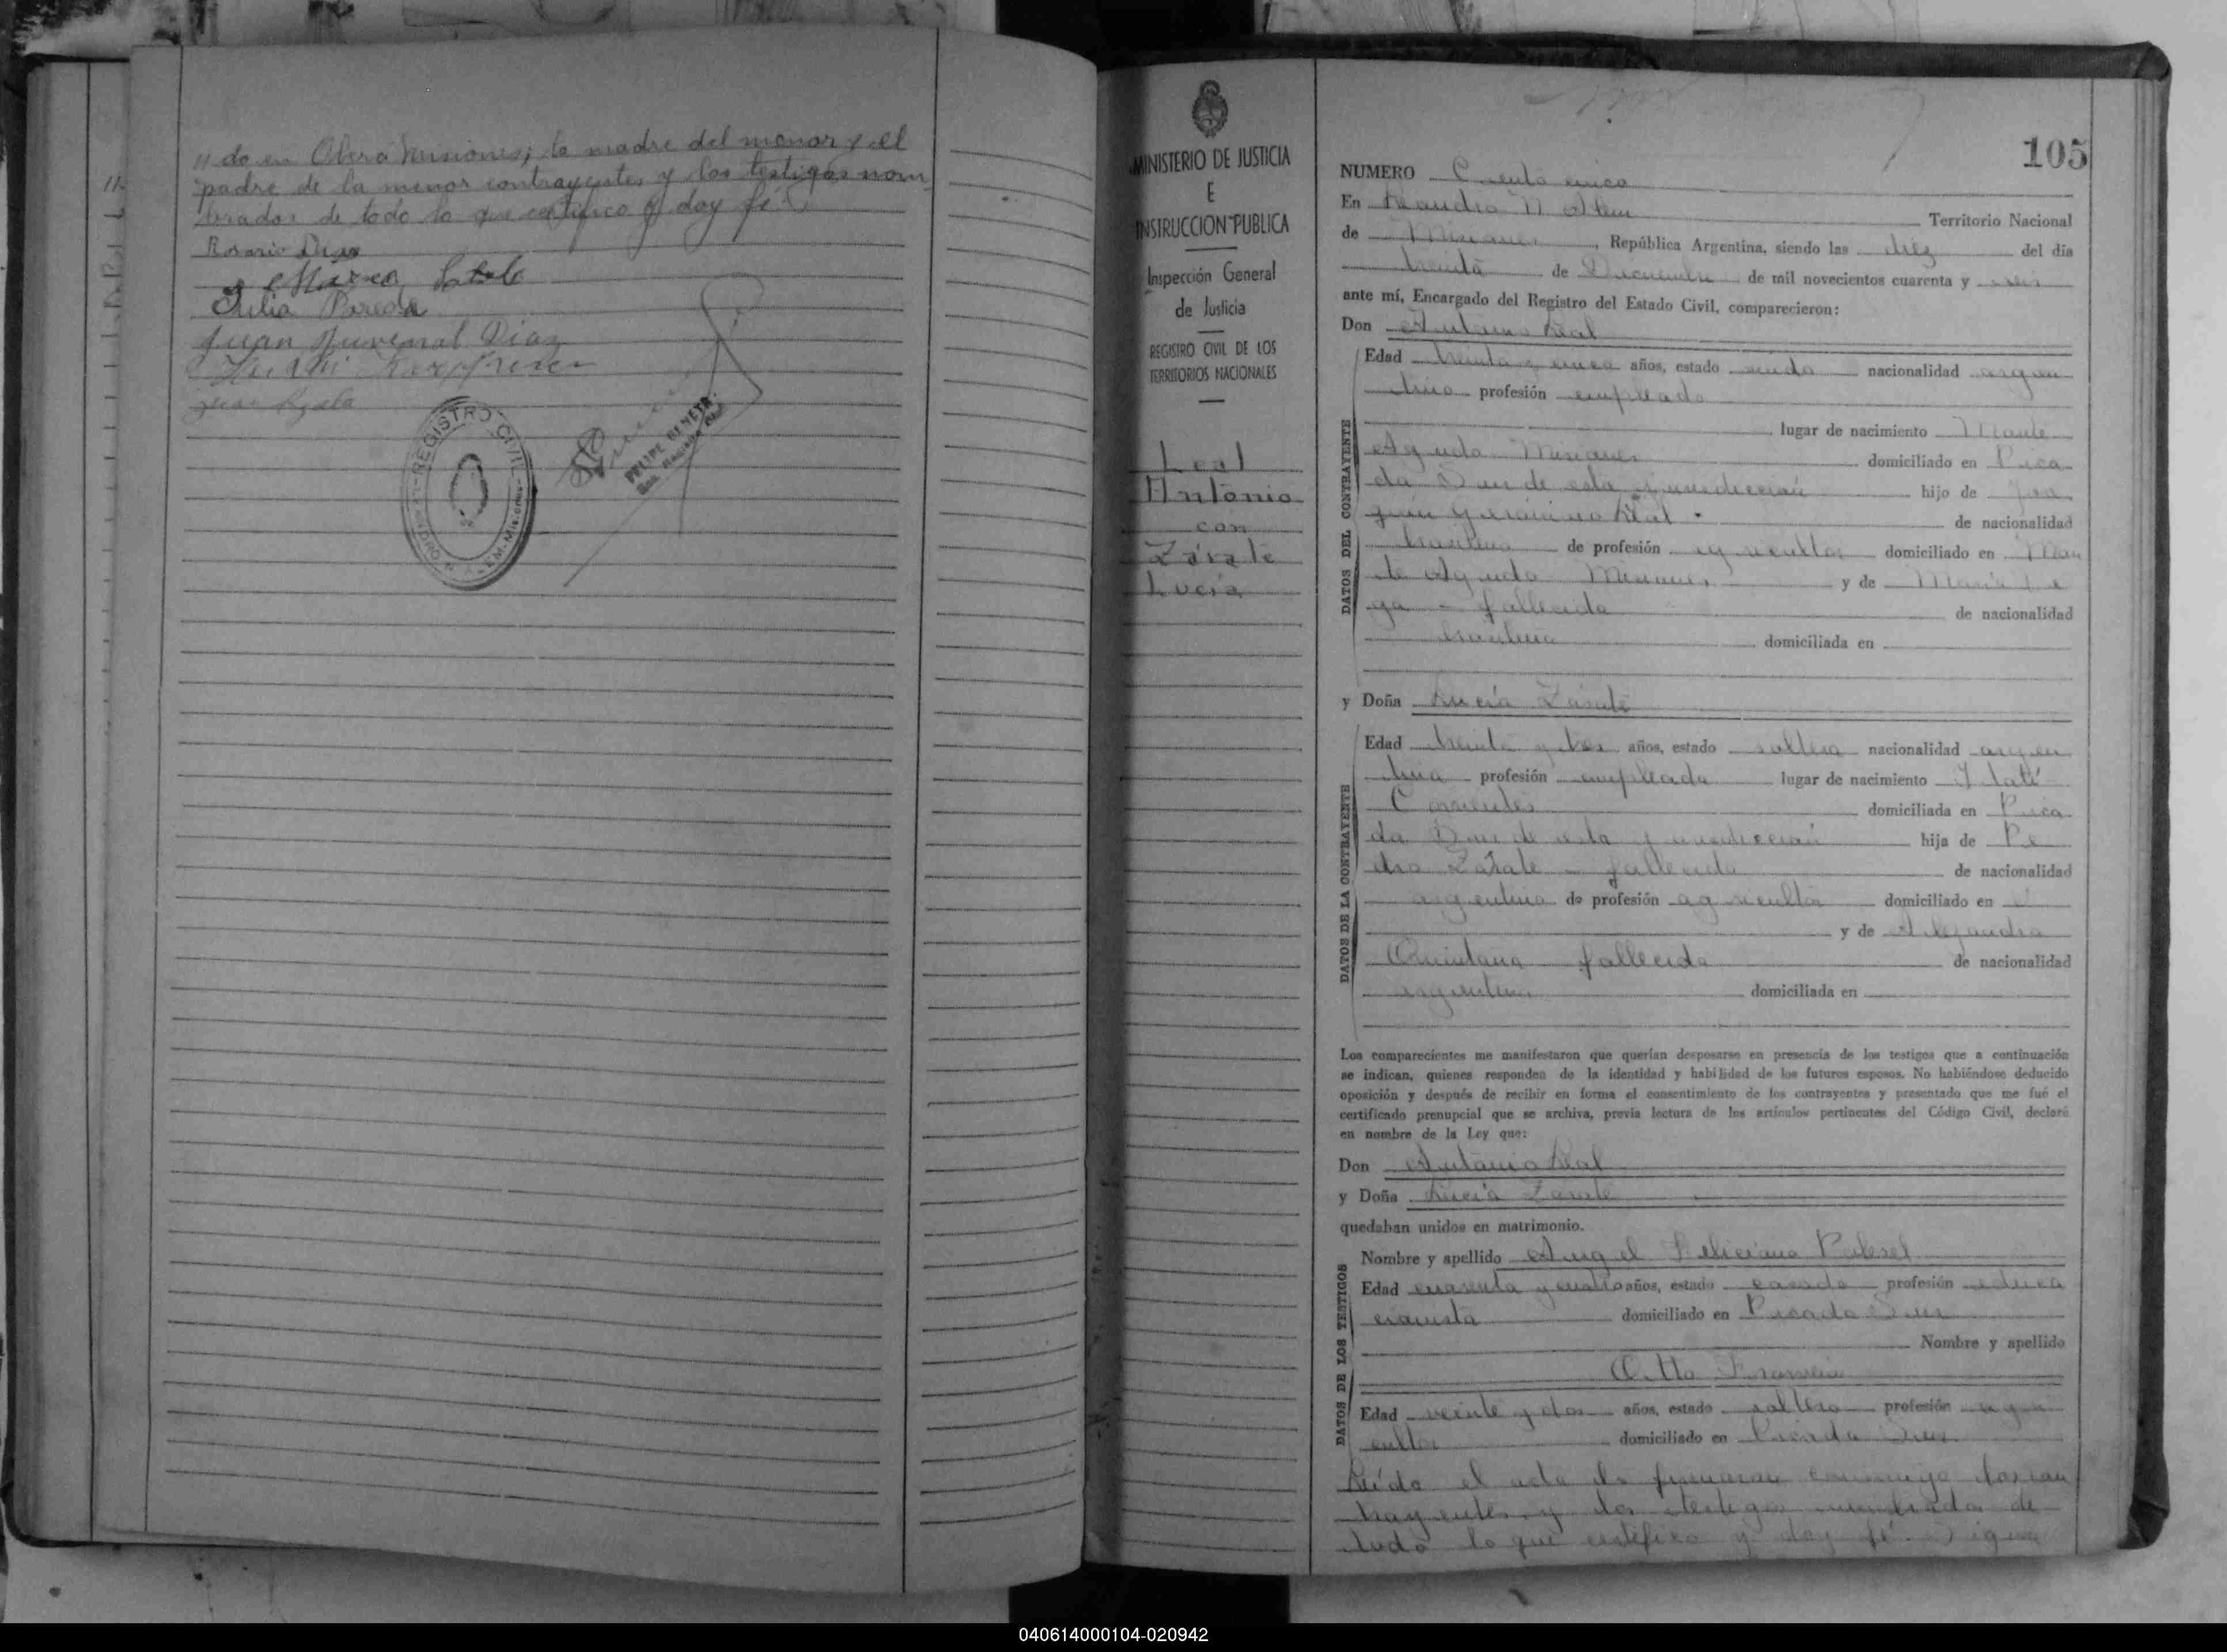 "do en Oberá Misiones; la madre del menor y el
padre de la menor contrayentes y los testigos nom
brados de todo lo que certifico y doy fé.
Rosario Diaz
Julia Pareda
Juan Juvenal Diaz
REGISTRO CIVIL
FELIPE BENETE
MINISTERIO DE JUSTICIA
E
INSTRUCCION PUBLICA
Inspección General
de Justicia
REGISTRO CIVIL DE LOS
TERRITORIOS NACIONALES
Leal
Antonio
con
Zárate
Lucía
105
NUMERO Ciento cinco
En Leandro N Alem Territorio Nacional
de Misiones, República Argentina, siendo las diez del día
treinta de Diciembre de mil novecientos cuarenta y seis
ante mí, Encargado del Registro del Estado Civil, comparecieron:
Don Antonio Leal
DATOS DEL CONTRAYENTE
Edad treinta y cinco años, estado viudo nacionalidad argen
tino profesión empleado
lugar de nacimiento Monte
Agudo Misiones domiciliado en Pica
da Sur de esta jurisdicción hijo de Joa
quin Gerónimo Leal de nacionalidad
brasilera de profesión agricultor domiciliado en Mon
te Agudo Misiones y de María
fallecida de nacionalidad
brasilera domiciliada en
y Doña Lucía Zárate
DATOS DE LA CONTRAYENTE
Edad treinta y tres años, estado soltera nacionalidad argen
tina profesión empleada lugar de nacimiento Itatí
Corrientes domiciliada en Pica
da Sur de esta jurisdicción hija de Pe
dro Zárate - fallecido de nacionalidad
argentina de profesión agricultor domiciliado en
y de Alejandra
Quintana fallecida de nacionalidad
argentina domiciliada en
Los comparecientes me manifestaron que querían desposarse en presencia de los testigos que a continuación
se indican, quienes responden de la identidad y habilidad de los futuros esposos. No habiéndose deducido
oposición y después de recibir en forma el consentimiento de los contrayentes y presentado que me fué el
certificado prenupcial que se archiva, previa lectura de los artículos pertinentes del Código Civil, declaré
en nombre de la Ley que:
Don Antonio Leal
y Doña Lucía Zárate
quedaban unidos en matrimonio.
DATOS DE LOS TESTIGOS
Nombre y apellido Angel Feliciano
Edad cuarenta y cuatro años, estado casado profesión educa
cionista domiciliado en Picada Sur
Nombre y apellido
Otto
Edad veinte y dos años, estado soltero profesión agri
cultor domiciliado en Picada Sur
Leído el acta la firmaron conmigo los con
trayentes y los testigos nombrados de
todo lo que certifico y doy fé. Sigue
040614000104-020942